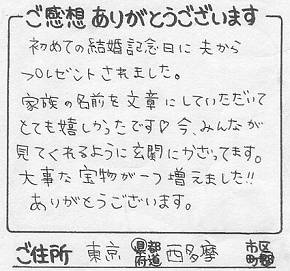 ご感想 ありがとうございます
初めての結婚記念日に夫から
プレゼントされました。
家族の名前を文章にしていただいて
とても嬉しかったです♡今、みんなが
見てくれるように玄関にかざってます。
大事な宝物が一つ増えました!!
ありがとうございます。
ご住所 東京 都道府県 西多摩 市区町郡